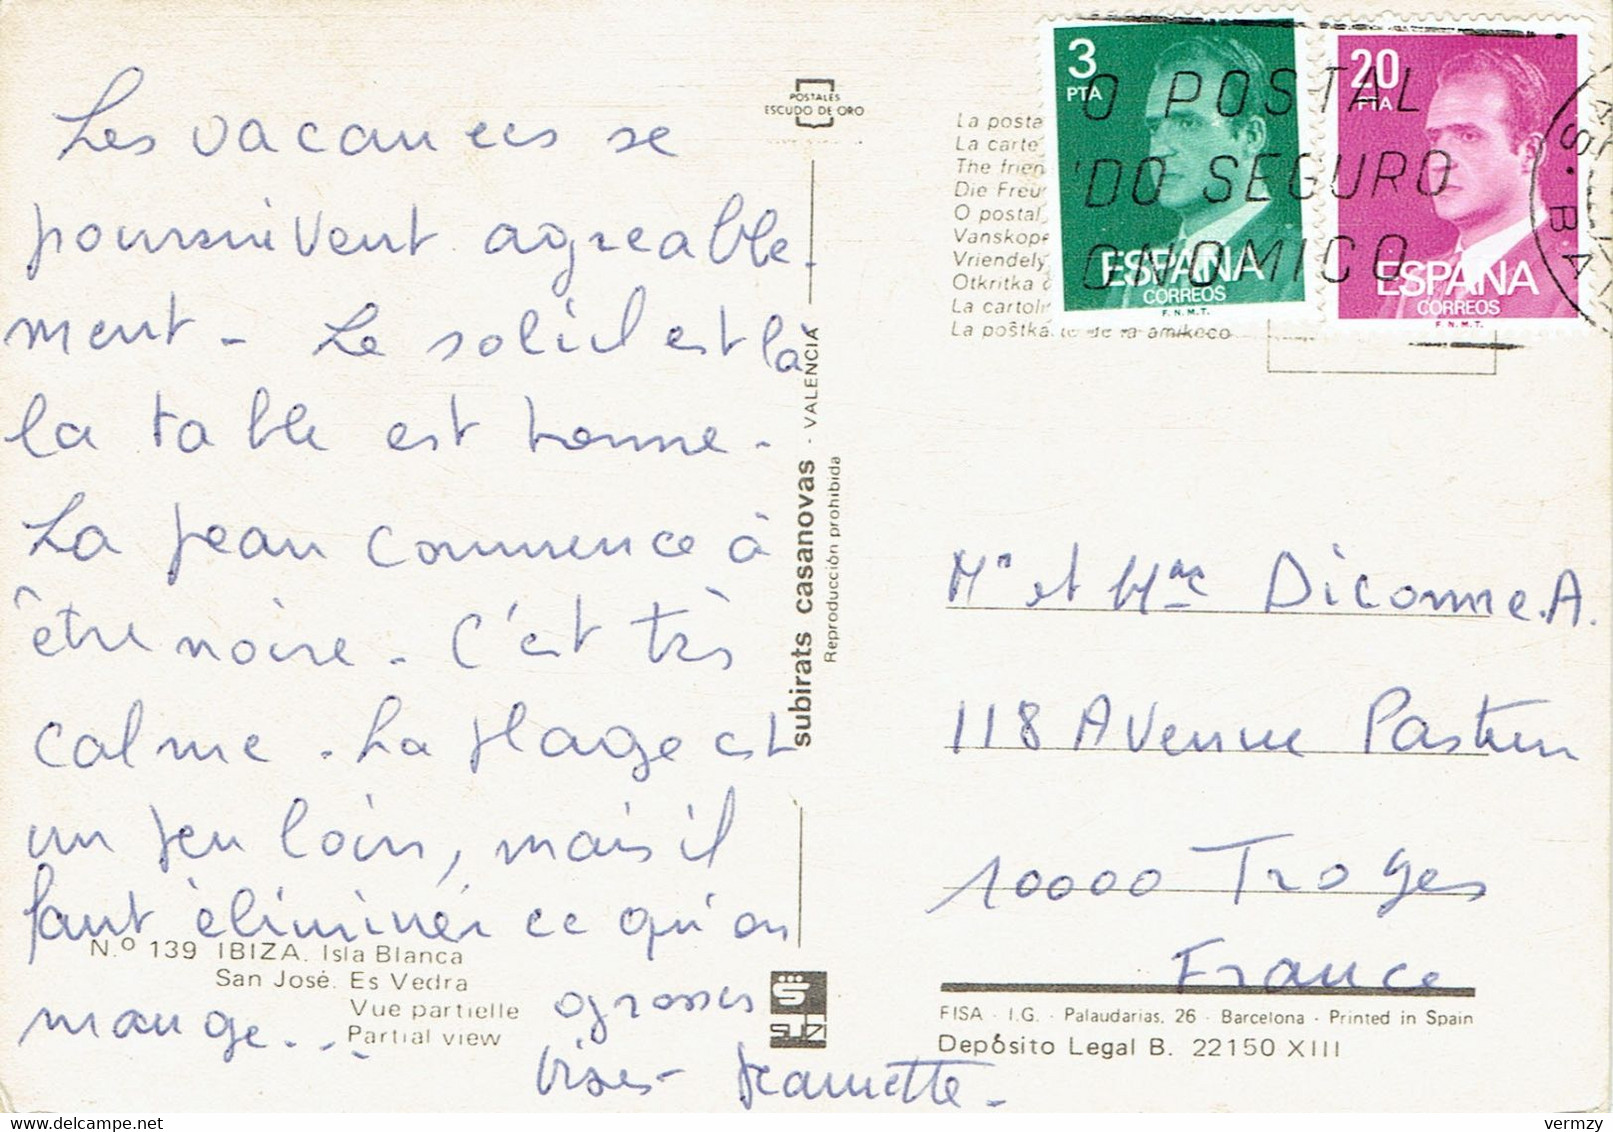 Les vacances se
poursuivent agreable-
ment - Le soleil est là
la table est bonne -
La peau commence à
être noire - C'est très
calme - La plage est
un peu loin, mais il
faut éliminer ce qu'on
mange...
grosses
bises - Jeannette -
POSTALES
ESCUDO DE ORO
subirats casanovas - VALENCIA
Reproducción prohibida
N.º 139 IBIZA. Isla Blanca
San José. Es Vedra
Vue partielle
Partial view
La posta
La carte
The frien
Die Freu
O postal
Vanskope
Vriendely
Otkritka
La cartoli
La poštka te de la amikeco
3
PTA
ESPAÑA
CORREOS
F.N.M.T.
20
PTA
ESPAÑA
CORREOS
F.N.M.T.
O POSTAL
DO SEGURO
ONOMICO
Mr et Mme Diconne.A.
118 Avenue Pasteur
10000 Troyes
France
FISA - I.G. - Palaudarias, 26 - Barcelona - Printed in Spain
Depósito Legal B. 22150 XIII
vermzy